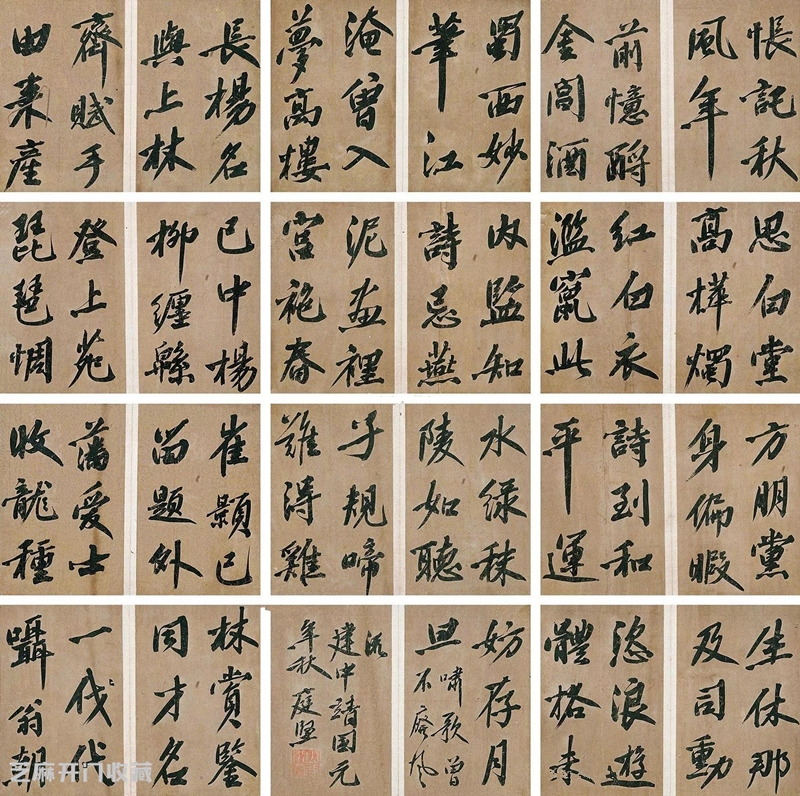 帳託秋
風年
前憶酹
金閶酒
蜀西妙
筆江
淹曾入
夢高樓
長楊名
與上林
齊賦手
由來產
思白黨
高樺燭
紅白衣
濫竄此
內監知
詩忌燕
泥畫裡
宮袍春
已中楊
柳纏緜
登上苑
琵琶惆
方朋黨
身偏暇
詩到和
平運
水綠秣
陵如聽
子規啼
難得雞
崔顥已
留題外
藹愛士
收龍種
生休那
及司勳
恣浪遊
體格未
妨存月
旦嘯歌曾
不廢風
流
建中靖國元
年秋庭堅
林賞鑒
因才名
一代
翁胡
芝麻开门收藏